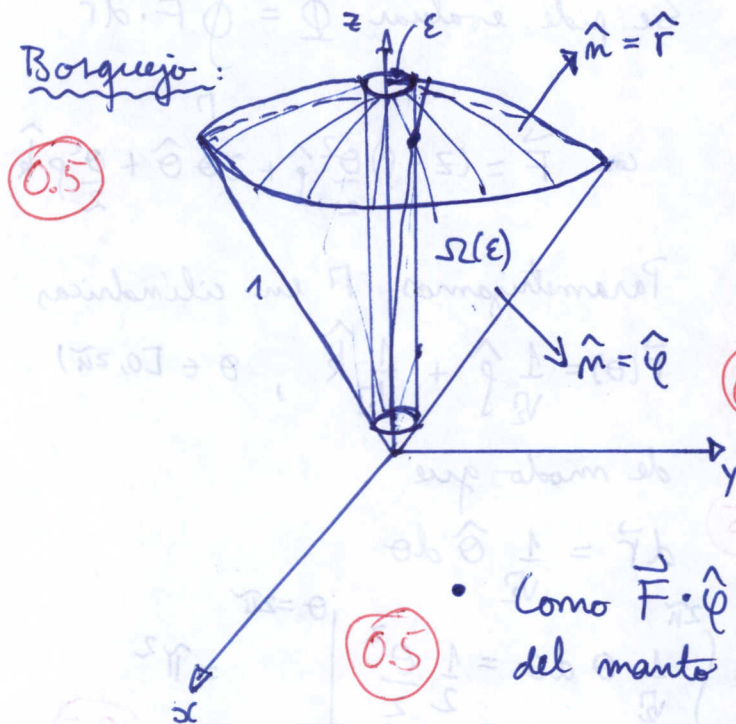 Bosquejo:
z
ε
n̂ = r̂
0.5
1
Ω(ε)
n̂ = φ̂
y
x
0.5
• Como F⃗ · φ̂
del manto